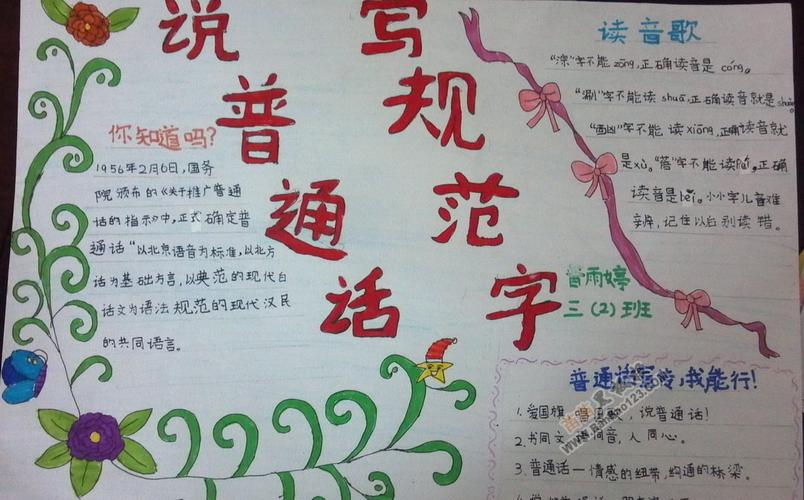 说普通话
写规范字
你知道吗?
1956年2月6日,国务
院颁布的《关于推广普通
话的指示》中,正式确定普
通话“以北京语音为标准,以北方
话为基础方言,以典范的现代白
话文为语法规范的现代汉民
的共同语言。
读音歌
“淙”字不能zōng,正确读音是cóng。
“涮”字不能读shuā,正确读音就是shuàn
“酗”字不能读xiōng,正确读音就
是xù。“蓓”字不能读Péi,正确
读音是bèi。小小字儿音难
辨,记住以后别读错。
曾雨婷
三(2)班
普通话宣传,我能行!
1.爱国旗,唱国歌,说普通话!
2.书同文,语同音,人同心。
3.普通话—情感的纽带,沟通的桥梁。